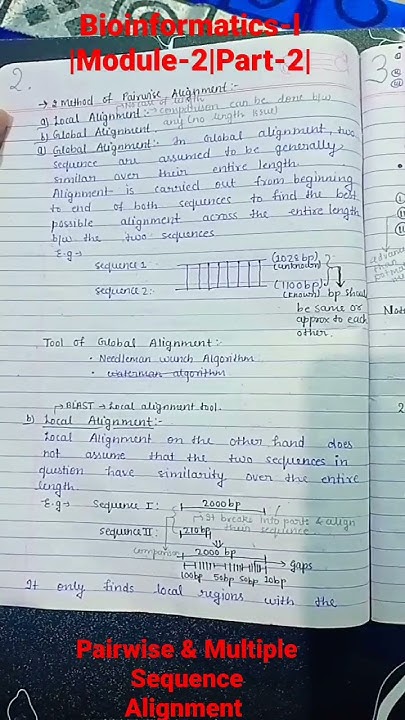 Bioinformatics-I
|Module-2|Part-2|
2.
3
→ 2 Method of Pairwise Alignment:-
a) Local Alignment:→ comparison can be done b/w
b) Global Alignment any (no length issue)
a) Global Alignment:- In Global alignment, two
sequence are assumed to be generally
similar over their entire length.
Alignment is carried out from beginning
to end of both sequences to find the best
possible alignment across the entire length
b/w the two sequences
E.g→
Sequence 1 (1028 bp)
(unknown)
Sequence 2:- (1100 bp)
(known) bp should
be same or
approx to each
other.
Tool of Global Alignment:-
• Needleman wunch Algorithm
• waterman algorithm.
→ BLAST → Local alignment tool.
b) Local Alignment:-
Local Alignment on the other hand does
not assume that the two sequences in
question have similarity over the entire
length
E.g→ Sequence I: 2000bp
→ It breaks into parts & align
their sequence
sequence II: 210bp
comparison 2000 bp
→ gaps
100bp 50bp 50bp 10bp
It only finds local regions with the
Pairwise & Multiple
Sequence
Alignment